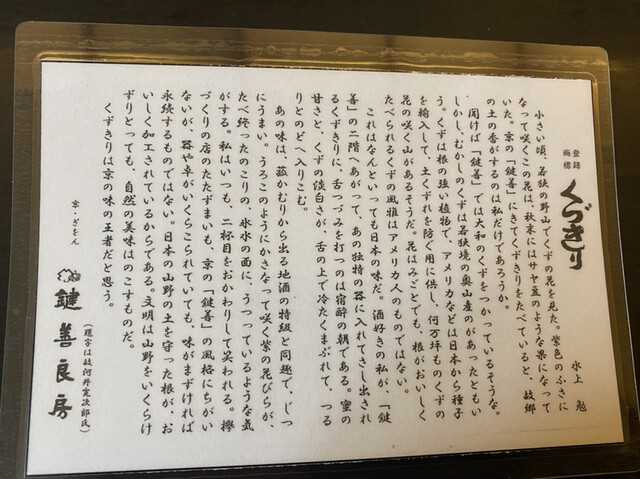 登録商標
くづきり
水上 勉
小さい頃、若狭の野山でくずの花を見た。紫色のふさに
なって咲くこの花は、秋末にはサヤ豆のような果になって
いた。京の「鍵善」にきてくずきりをたべていると、故郷
の土の香がするのは私だけであろうか。
聞けば「鍵善」では大和のくずをつかっているそうな。
しかし、むかしのくずは若狭境の奥山産のがあったともい
う。くずは根の強い植物で、アメリカなどは日本から種子
を輸入して、土くずれを防ぐ用に供し、何万坪ものくずの
花の咲く山があるそうだ。花はみごとでも、根がおいしく
たべられるくずの風雅はアメリカ人のものではない。
これはなんといっても日本の味だ。酒好きの私が、「鍵
善」の二階へあがって、あの独特の器に入れてさし出され
るくずきりに、舌つづみを打つのは宿酔の朝である。蜜の
甘さと、くずの淡白さが、舌の上で冷たくまぶれて、つる
りとのどへ入りこむ。
あの味は、菰かむりから出る地酒の特級と同趣で、じつ
にうまい。うろこのようにかさなって咲く紫の花びらが、
たべ終ったのこりの、氷水の面に、うつっているような気
がする。私はいつも、二杯目をおかわりして笑われる。欅
づくりの店のたたずまいも、京の「鍵善」の風格にちがい
ないが、器や卓がいくらこられていても、味がまずければ
永続するものではない。日本の山野の土を守った根が、お
いしく加工されているからである。文明は山野をいくらけ
ずりとっても、自然の美味はのこすものだ。
くずきりは京の味の王者だと思う。
京・ぎをん
鍵善良房
(題字は故河井寛次郎氏)